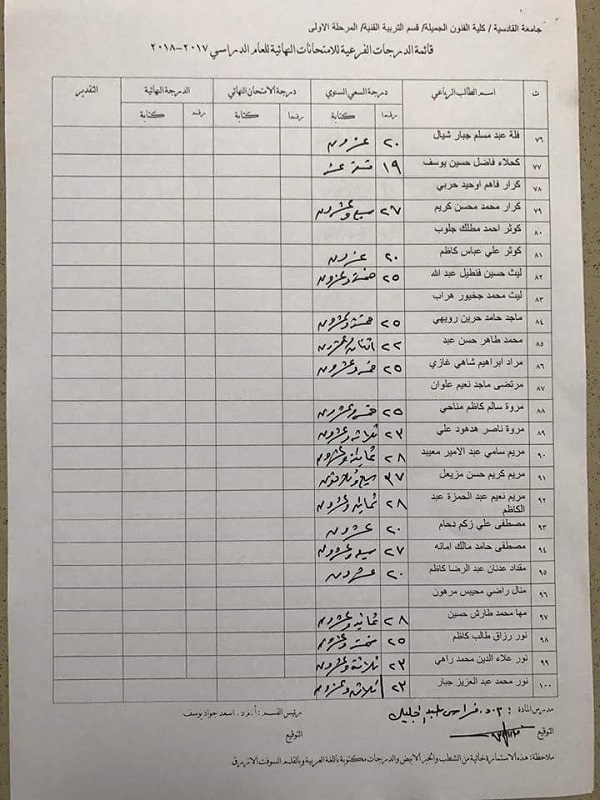 جامعة القادسية / كلية الفنون الجميلة/ قسم التربية الفنية/ المرحلة الاولى
قائمة الدرجات الفرعية للامتحانات النهائية للعام الدراسي ٢٠١٧-٢٠١٨
ت اسم الطالب الرباعي درجة السعي السنوي درجة الامتحان النهائي الدرجة النهائية التقدير
رقما كتابة رقما كتابة رقما كتابة
٧٦ فلة عبد مسلم جبار شيال ٢٠ عشرون
٧٧ كحلاء فاضل حسين يوسف ١٩ تسعة عشر
٧٨ كرار فاهم اوحيد حربي
٧٩ كرار محمد محسن كريم ٢٧ سبع وعشرون
٨٠ كوثر احمد مطلك جلوب
٨١ كوثر علي عباس كاظم ٢٠ عشرون
٨٢ ليث حسين فنطيل عبد الله ٢٥ خمسة وعشرون
٨٣ ليث محمد جخيور هراب
٨٤ ماجد حامد حرين رويهي ٢٥ خمسة وعشرون
٨٥ محمد طاهر حسن عبد ٢٢ اثنان وعشرون
٨٦ مراد ابراهيم شاهي غازي ٢٥ خمسة وعشرون
٨٧ مرتضى ماجد نعيم علوان
٨٨ مروة سالم كاظم مناحي ٢٥ خمسة وعشرون
٨٩ مروة ناصر هدهود علي ٢٣ ثلاثة وعشرون
٩٠ مريم سامي عبد الامير معيبد ٢٨ ثمانية وعشرون
٩١ مريم كريم حسن مزيعل ٣٧ سبع وثلاثون
٩٢ مريم نعيم عبد الحمزة عبد الكاظم ٢٨ ثمانية وعشرون
٩٣ مصطفى علي زكم دحام ٢٠ عشرون
٩٤ مصطفى حامد مالك امانه ٢٧ سبع وعشرون
٩٥ مقداد عدنان عبد الرضا كاظم ٢٠ عشرون
٩٦ منال راضي محيبس مرهون
٩٧ مها محمد طارش حسين ٢٨ ثمانية وعشرون
٩٨ نور رزاق طالب كاظم ٢٥ خمسة وعشرون
٩٩ نور علاء الدين محمد راهي ٢٣ ثلاثة وعشرون
١٠٠ نور محمد عبد العزيز جبار ٢٣ ثلاثة وعشرون
مدرس المادة : م.د. فراس عبد الجليل رئيس القسم : أ.م.د. اسعد جواد يوسف
التوقيع التوقيع
ملاحظة: هذه الاستمارة خالية من الشطب والحبر الابيض والدرجات مكتوبة باللغة العربية وبالقلم السوفت الازرق